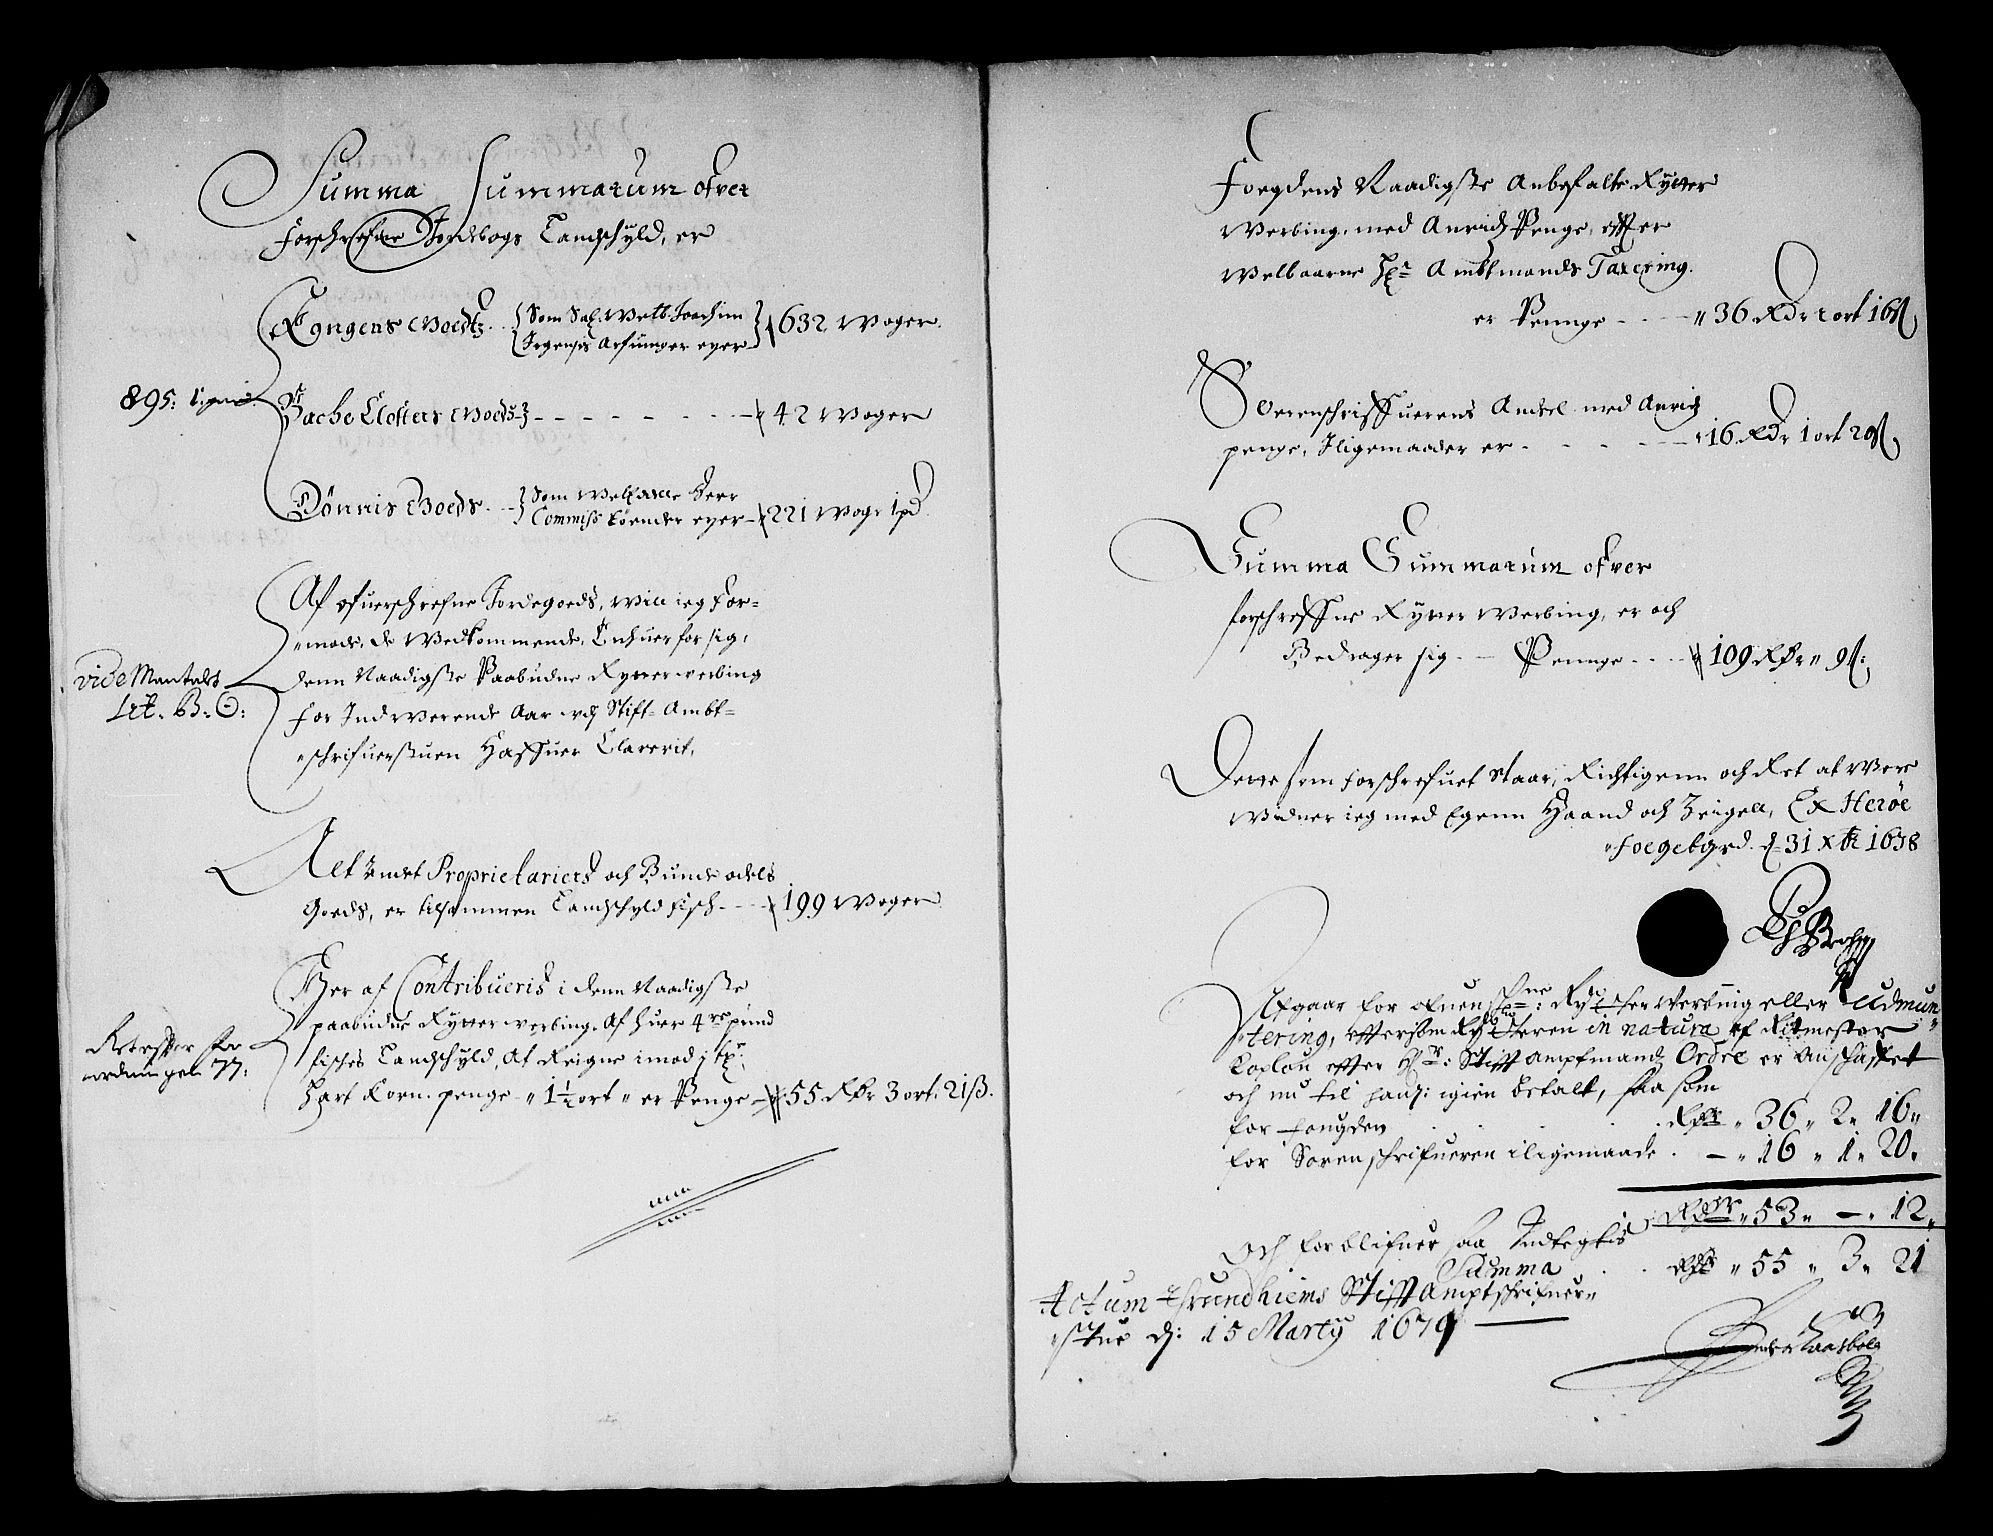 Summa Summarum ofver
forschrefne Jordebogs Landschyld, er
Kongens Goedtz {Som Sal. Welb. Joachim
Irgenses Arfuinger eyer} 632 Woger
895:
Bache Closters Goeds - - - 42 Woger
Dönnis Goeds {Som Welbaarne Herr
Commiss: eyer 221 Wogr 1 pd
Af ofuerschrefne Jordegoeds, will ieg For=
=mode, de Wedkommende, Enhuer for sig,
denn Naadigste Paabudne Rytterwerbing
for Indwerende Aar wed Stift Ambt=
=schrifuerstuen Haffuer Clarerit.
vide Mantals
Lit. B: C:
Alt andet Proprietariers och Bunde odels
Goeds, er tilsammen Landschyld fisch - - 199 Woger
Her af Contribueris i denn Naadigste
paabudne Rytter werbing. Af huer 4re pund
fisches Landschyld, At Reigne imod j tn:
Hart Korn. penge " 1½ ort " er Penge - 55 Rdr 3 ort. 21 ß.
77:
Foegdens Naadigste Anbefalte Rytter
Werbing, med Anrid Penge, effter
Welbaarne Hr Ambtmands Taxering.
er Pennge - - - " 36 Rdr 2 ort 16 ß
Sorenschriffuerens Andeel med Anrid
penge, Iligemaader er - - - 16 Rdr 1 ort 20 ß
Summa Summarum ofver
forschreffne Rytter Werbing, er och
Bedrager sig - - Pennge - - 109 Rdr " 9 ß:
Dette som forschrefuet staar, Richtigenn och Ret at Wer
Widner ieg med Egenn Haand och Zeigell, Ex Heröe
Foegetgrd. d. 31 Xbr 1678
Afgaar for ofuenschne: Rytterwerbing eller Udmun=
=tering, effterson Rytteren in natura af Ritmester
Koplou effter Hr: Stifftamptmands Ordre er Anschaffet
och nu til hannem igien betalt, saa som
for fougden . . . Rdr " 36 " 2 " 16 "
for Sorenschrifueren iligemaade . - " 16 " 1 " 20 "
Rdr " 53 " - " 12 "
Och forblifuer saa Indtegtis
Summa . . Rdr " 55 " 3 " 21
Actum Thrundhiems Stifftamptschrifuer=
=stue d: 15 Marty 1679